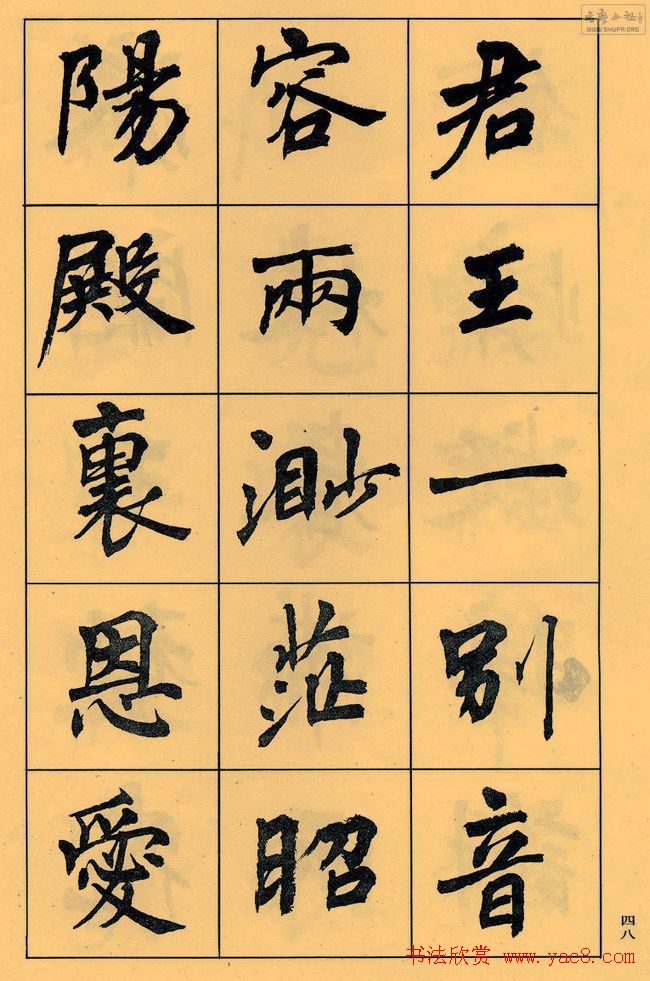 君王一别音
容兩渺茫昭
陽殿裏恩愛
四八
书法欣赏 www.yac8.com
WWW.SHUFA.ORG